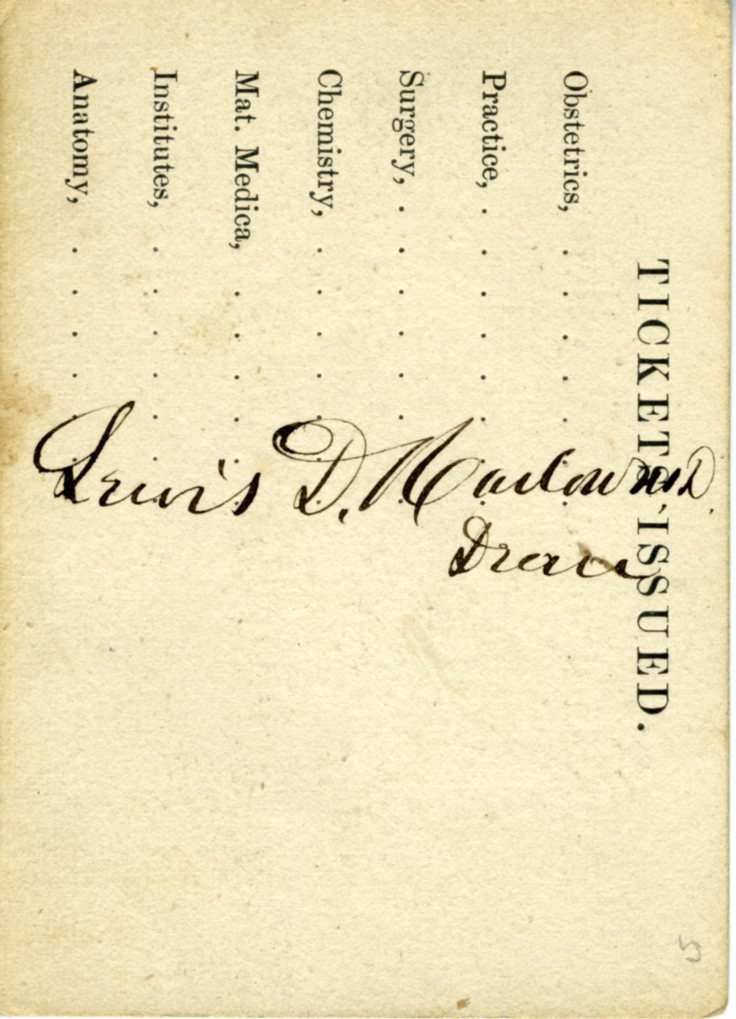 TICKETS ISSUED.
Obstetrics, . . . . . .
Practice, . . . . . . .
Surgery, . . . . . . . .
Chemistry, . . . . . . .
Mat. Medica, . . . . . .
Institutes, . . . . . .
Anatomy, . . . . . .
Lewis D. Harlow M.D.
Dean
5